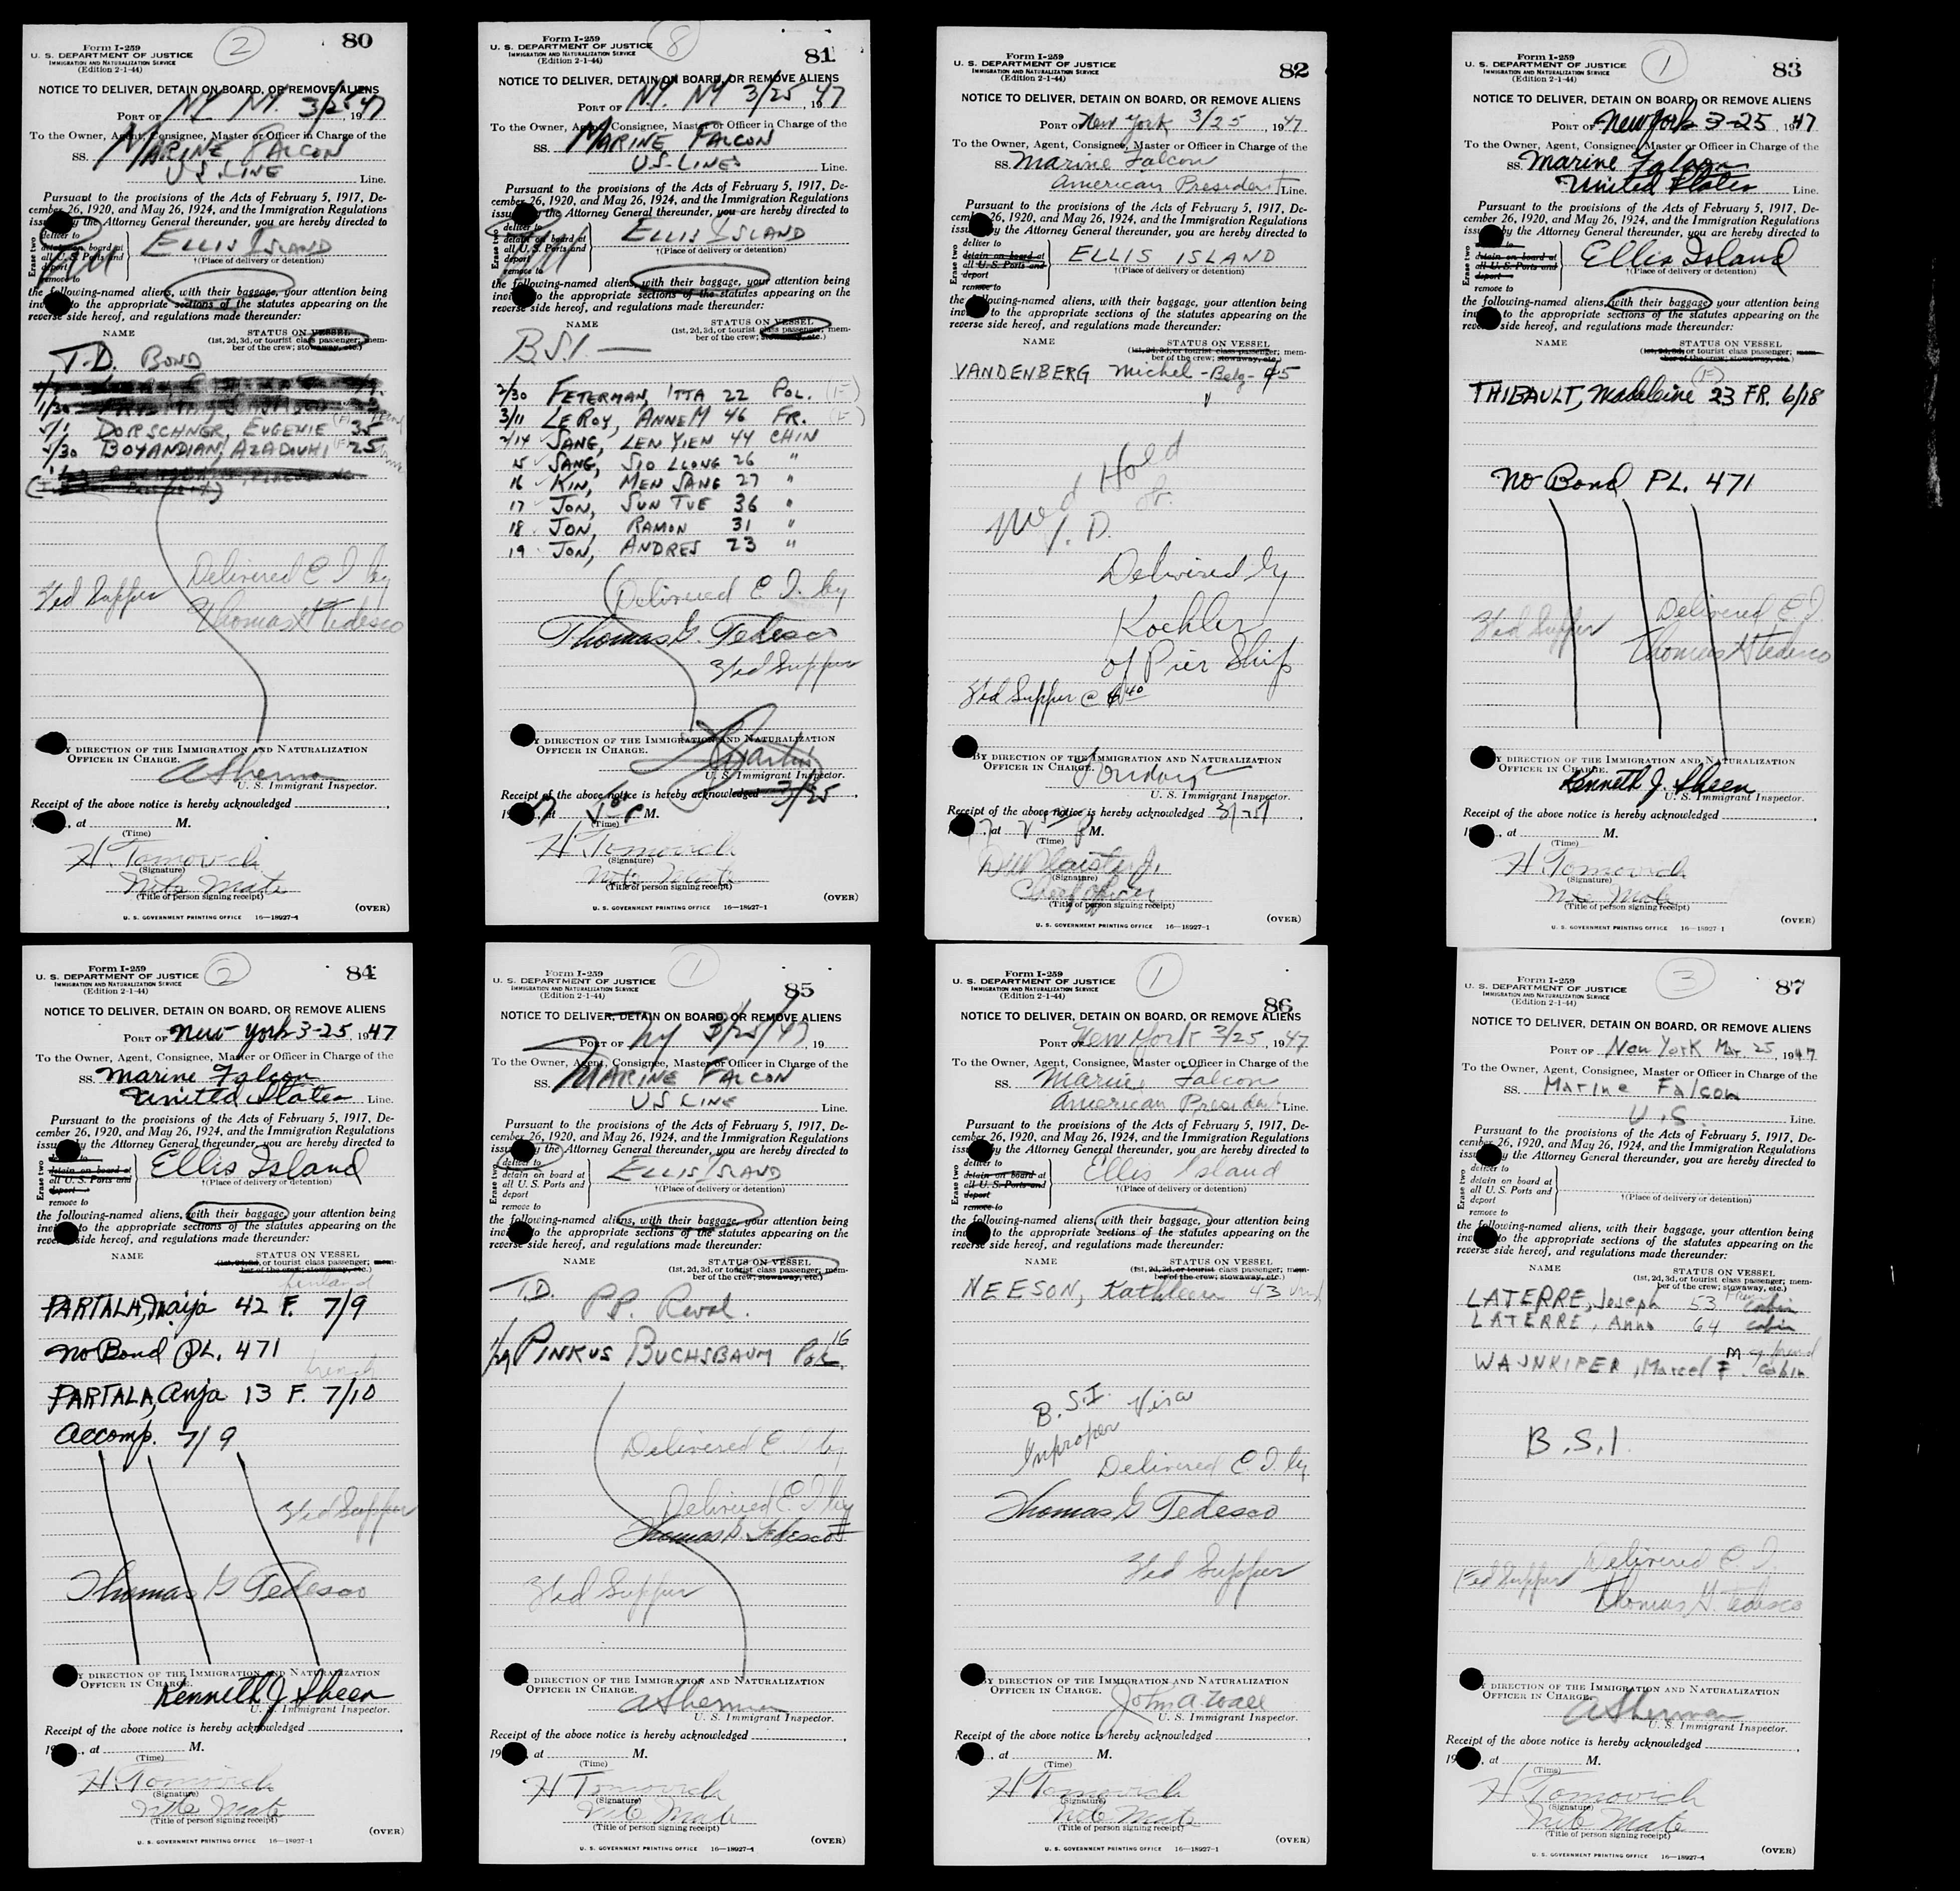 Form I-259
U. S. DEPARTMENT OF JUSTICE
IMMIGRATION AND NATURALIZATION SERVICE
(Edition 2-1-44)
2
80
NOTICE TO DELIVER, DETAIN ON BOARD, OR REMOVE ALIENS
PORT OF N.Y. N.Y. 3/25 1947
To the Owner, Agent, Consignee, Master or Officer in Charge of the
SS. MARINE FALCON
US LINE Line.
Pursuant to the provisions of the Acts of February 5, 1917, De-
cember 26, 1920, and May 26, 1924, and the Immigration Regulations
issued by the Attorney General thereunder, you are hereby directed to
Erase two
deliver to
detain on board at
all U. S. Ports and
deport
remove to
ELLIS ISLAND
†(Place of delivery or detention)
the following-named aliens, with their baggage, your attention being
to the appropriate sections of the statutes appearing on the
reverse side hereof, and regulations made thereunder:
NAME STATUS ON VESSEL
(1st, 2d, 3d, or tourist class passenger; mem-
ber of the crew; stowaway, etc.)
T.D. BOND
5/1 DORSCHNER, EUGENIE (F) 35
5/30 BOYANDIAN, AZADOUHI (F) 25
Delivered E I by
Fed Supper
Thomas G Tedesco
BY DIRECTION OF THE IMMIGRATION AND NATURALIZATION
OFFICER IN CHARGE.
A Sherman
U. S. Immigrant Inspector.
Receipt of the above notice is hereby acknowledged
, at M.
(Time)
H. Tomovich
(Signature)
Nite Mate
(Title of person signing receipt)
(OVER)
U. S. GOVERNMENT PRINTING OFFICE 16—18927-1
Form I-259
U. S. DEPARTMENT OF JUSTICE
IMMIGRATION AND NATURALIZATION SERVICE
(Edition 2-1-44)
8
81
NOTICE TO DELIVER, DETAIN ON BOARD, OR REMOVE ALIENS
PORT OF N.Y. NY 3/25, 1947
To the Owner, Agent, Consignee, Master or Officer in Charge of the
SS. MARINE FALCON
US-LINES Line.
Pursuant to the provisions of the Acts of February 5, 1917, De-
cember 26, 1920, and May 26, 1924, and the Immigration Regulations
issued by the Attorney General thereunder, you are hereby directed to
Erase two
deliver to
detain on board at
all U. S. Ports and
deport
remove to
ELLIS ISLAND
†(Place of delivery or detention)
the following-named aliens, with their baggage, your attention being
to the appropriate sections of the statutes appearing on the
reverse side hereof, and regulations made thereunder:
NAME STATUS ON VESSEL
(1st, 2d, 3d, or tourist class passenger; mem-
ber of the crew; stowaway, etc.)
B.S.I. —
2/30 FETERMAN, ITTA 22 POL. (F)
3/11 LEROY, ANNE M 46 FR. (F)
2/14 SANG, LEN YIEN 44 CHIN
15 SANG, SIO LLONG 26 "
16 KIN, MEN SANG 27 "
17 JON, SUN TUE 36 "
18 JON, RAMON 31 "
19 JON, ANDRES 23 "
Delivered E. I. by
Thomas G. Tedesco
Fed Supper
BY DIRECTION OF THE IMMIGRATION AND NATURALIZATION
OFFICER IN CHARGE.
U. S. Immigrant Inspector.
Receipt of the above notice is hereby acknowledged 3/25,
, at M.
(Time)
H. Tomovich
(Signature)
Nite Mate
(Title of person signing receipt)
(OVER)
U. S. GOVERNMENT PRINTING OFFICE 16—18927-1
Form I-259
U. S. DEPARTMENT OF JUSTICE
IMMIGRATION AND NATURALIZATION SERVICE
(Edition 2-1-44)
82
NOTICE TO DELIVER, DETAIN ON BOARD, OR REMOVE ALIENS
PORT OF New York 3/25, 1947
To the Owner, Agent, Consignee, Master or Officer in Charge of the
SS. Marine Falcon
American President Line.
Pursuant to the provisions of the Acts of February 5, 1917, De-
cember 26, 1920, and May 26, 1924, and the Immigration Regulations
issued by the Attorney General thereunder, you are hereby directed to
Erase two
deliver to
detain on board at
all U. S. Ports and
deport
remove to
ELLIS ISLAND
†(Place of delivery or detention)
the following-named aliens, with their baggage, your attention being
to the appropriate sections of the statutes appearing on the
reverse side hereof, and regulations made thereunder:
NAME STATUS ON VESSEL
(1st, 2d, 3d, or tourist class passenger; mem-
ber of the crew; stowaway, etc.)
VANDENBERG Michel - Belg - 45
Med Hold
T. D.
Delivered by
Koehler
of Pier Ship
Fed Supper @ 6 40
BY DIRECTION OF THE IMMIGRATION AND NATURALIZATION
OFFICER IN CHARGE.
U. S. Immigrant Inspector.
Receipt of the above notice is hereby acknowledged
at M.
(Time)
(Signature)
Chief Officer
(Title of person signing receipt)
(OVER)
U. S. GOVERNMENT PRINTING OFFICE 16—18927-1
Form I-259
U. S. DEPARTMENT OF JUSTICE
IMMIGRATION AND NATURALIZATION SERVICE
(Edition 2-1-44)
1
83
NOTICE TO DELIVER, DETAIN ON BOARD, OR REMOVE ALIENS
PORT OF New York 3-25, 1947
To the Owner, Agent, Consignee, Master or Officer in Charge of the
SS. Marine Falcon
United States Line.
Pursuant to the provisions of the Acts of February 5, 1917, De-
cember 26, 1920, and May 26, 1924, and the Immigration Regulations
issued by the Attorney General thereunder, you are hereby directed to
Erase two
to
detain on board at
all U. S. Ports and
deport
remove to
Ellis Island
†(Place of delivery or detention)
the following-named aliens, with their baggage, your attention being
to the appropriate sections of the statutes appearing on the
reverse side hereof, and regulations made thereunder:
NAME STATUS ON VESSEL
(1st, 2d, 3d, or tourist class passenger; mem-
ber of the crew; stowaway, etc.)
(F)
THIBAULT, Madeleine 23 FR. 6/18
No Bond PL. 471
Fed Supper
Delivered E I.
Thomas G Tedesco
BY DIRECTION OF THE IMMIGRATION AND NATURALIZATION
OFFICER IN CHARGE.
Kenneth J. Sheen
U. S. Immigrant Inspector.
Receipt of the above notice is hereby acknowledged
, at M.
(Time)
H Tomovich
(Signature)
Nite Mate
(Title of person signing receipt)
(OVER)
U. S. GOVERNMENT PRINTING OFFICE 16—18927-1
Form I-259
U. S. DEPARTMENT OF JUSTICE
IMMIGRATION AND NATURALIZATION SERVICE
(Edition 2-1-44)
2
84
NOTICE TO DELIVER, DETAIN ON BOARD, OR REMOVE ALIENS
PORT OF New York 3-25, 1947
To the Owner, Agent, Consignee, Master or Officer in Charge of the
SS. Marine Falcon
United States Line.
Pursuant to the provisions of the Acts of February 5, 1917, De-
cember 26, 1920, and May 26, 1924, and the Immigration Regulations
issued by the Attorney General thereunder, you are hereby directed to
Erase two
to
detain on board at
all U. S. Ports and
deport
remove to
Ellis Island
†(Place of delivery or detention)
the following-named aliens, with their baggage, your attention being
to the appropriate sections of the statutes appearing on the
reverse side hereof, and regulations made thereunder:
NAME STATUS ON VESSEL
(1st, 2d, 3d, or tourist class passenger; mem-
ber of the crew; stowaway, etc.)
Finland
PARTALA, Maija 42 F. 7/9
No Bond PL. 471
PARTALA, Anja 13 F. 7/10
Accomp. 7/9
Fed Supper
Thomas G Tedesco
BY DIRECTION OF THE IMMIGRATION AND NATURALIZATION
OFFICER IN CHARGE.
Kenneth J Sheen
U. S. Immigrant Inspector.
Receipt of the above notice is hereby acknowledged
19 , at M.
(Time)
H. Tomovich
(Signature)
Nite Mate
(Title of person signing receipt)
(OVER)
U. S. GOVERNMENT PRINTING OFFICE 16—18927-1
Form I-259
U. S. DEPARTMENT OF JUSTICE
IMMIGRATION AND NATURALIZATION SERVICE
(Edition 2-1-44)
1
85
NOTICE TO DELIVER, DETAIN ON BOARD, OR REMOVE ALIENS
PORT OF NY 3/25/47, 19
To the Owner, Agent, Consignee, Master or Officer in Charge of the
SS. MARINE FALCON
US LINE Line.
Pursuant to the provisions of the Acts of February 5, 1917, De-
cember 26, 1920, and May 26, 1924, and the Immigration Regulations
issued by the Attorney General thereunder, you are hereby directed to
Erase two
deliver to
detain on board at
all U. S. Ports and
deport
remove to
ELLIS ISLAND
†(Place of delivery or detention)
the following-named aliens, with their baggage, your attention being
to the appropriate sections of the statutes appearing on the
reverse side hereof, and regulations made thereunder:
NAME STATUS ON VESSEL
(1st, 2d, 3d, or tourist class passenger; mem-
ber of the crew; stowaway, etc.)
T.D. P.P. Reval.
PINKUS BUCHSBAUM Pol. 16
Delivered E. I by
Delivered E. I by
Thomas G. Tedesco
Fed Supper
BY DIRECTION OF THE IMMIGRATION AND NATURALIZATION
OFFICER IN CHARGE.
A Sherman
U. S. Immigrant Inspector.
Receipt of the above notice is hereby acknowledged
19 , at M.
(Time)
H Tomovich
(Signature)
Nite Mate
(Title of person signing receipt)
(OVER)
U. S. GOVERNMENT PRINTING OFFICE 16—18927-1
Form I-259
U. S. DEPARTMENT OF JUSTICE
IMMIGRATION AND NATURALIZATION SERVICE
(Edition 2-1-44)
1
86
NOTICE TO DELIVER, DETAIN ON BOARD, OR REMOVE ALIENS
PORT OF New York 3/25, 1947
To the Owner, Agent, Consignee, Master or Officer in Charge of the
SS. Marine Falcon
American President Line.
Pursuant to the provisions of the Acts of February 5, 1917, De-
cember 26, 1920, and May 26, 1924, and the Immigration Regulations
issued by the Attorney General thereunder, you are hereby directed to
Erase two
deliver to
detain on board at
all U. S. Ports and
deport
remove to
Ellis Island
†(Place of delivery or detention)
the following-named aliens, with their baggage, your attention being
to the appropriate sections of the statutes appearing on the
reverse side hereof, and regulations made thereunder:
NAME STATUS ON VESSEL
(1st, 2d, 3d, or tourist class passenger; mem-
ber of the crew; stowaway, etc.)
NEESON, Kathleen 43
B.S.I.
Improper Visa
Delivered E. I. by
Thomas G Tedesco
Fed Supper
BY DIRECTION OF THE IMMIGRATION AND NATURALIZATION
OFFICER IN CHARGE.
John A. Wall
U. S. Immigrant Inspector.
Receipt of the above notice is hereby acknowledged
, at M.
(Time)
H Tomovich
(Signature)
Nite Mate
(Title of person signing receipt)
(OVER)
U. S. GOVERNMENT PRINTING OFFICE 16—18927-1
Form I-259
U. S. DEPARTMENT OF JUSTICE
IMMIGRATION AND NATURALIZATION SERVICE
(Edition 2-1-44)
3
87
NOTICE TO DELIVER, DETAIN ON BOARD, OR REMOVE ALIENS
PORT OF New York Mar. 25, 1947
To the Owner, Agent, Consignee, Master or Officer in Charge of the
SS. Marine Falcon
U.S. Line.
Pursuant to the provisions of the Acts of February 5, 1917, De-
cember 26, 1920, and May 26, 1924, and the Immigration Regulations
issued by the Attorney General thereunder, you are hereby directed to
Erase two
deliver to
detain on board at
all U. S. Ports and
deport
remove to
†(Place of delivery or detention)
the following-named aliens, with their baggage, your attention being
to the appropriate sections of the statutes appearing on the
reverse side hereof, and regulations made thereunder:
NAME STATUS ON VESSEL
(1st, 2d, 3d, or tourist class passenger; mem-
ber of the crew; stowaway, etc.)
LATERRE, Joseph 53 cabin
LATERRE, Anna 64 cabin
WAJNKIPER, Marcel M cabin
B.S.I.
Fed Supper
Delivered E. I.
Thomas G. Tedesco
BY DIRECTION OF THE IMMIGRATION AND NATURALIZATION
OFFICER IN CHARGE.
A Sherman
U. S. Immigrant Inspector.
Receipt of the above notice is hereby acknowledged
19 , at M.
(Time)
H Tomovich
(Signature)
Nite Mate
(Title of person signing receipt)
(OVER)
U. S. GOVERNMENT PRINTING OFFICE 16—18927-1